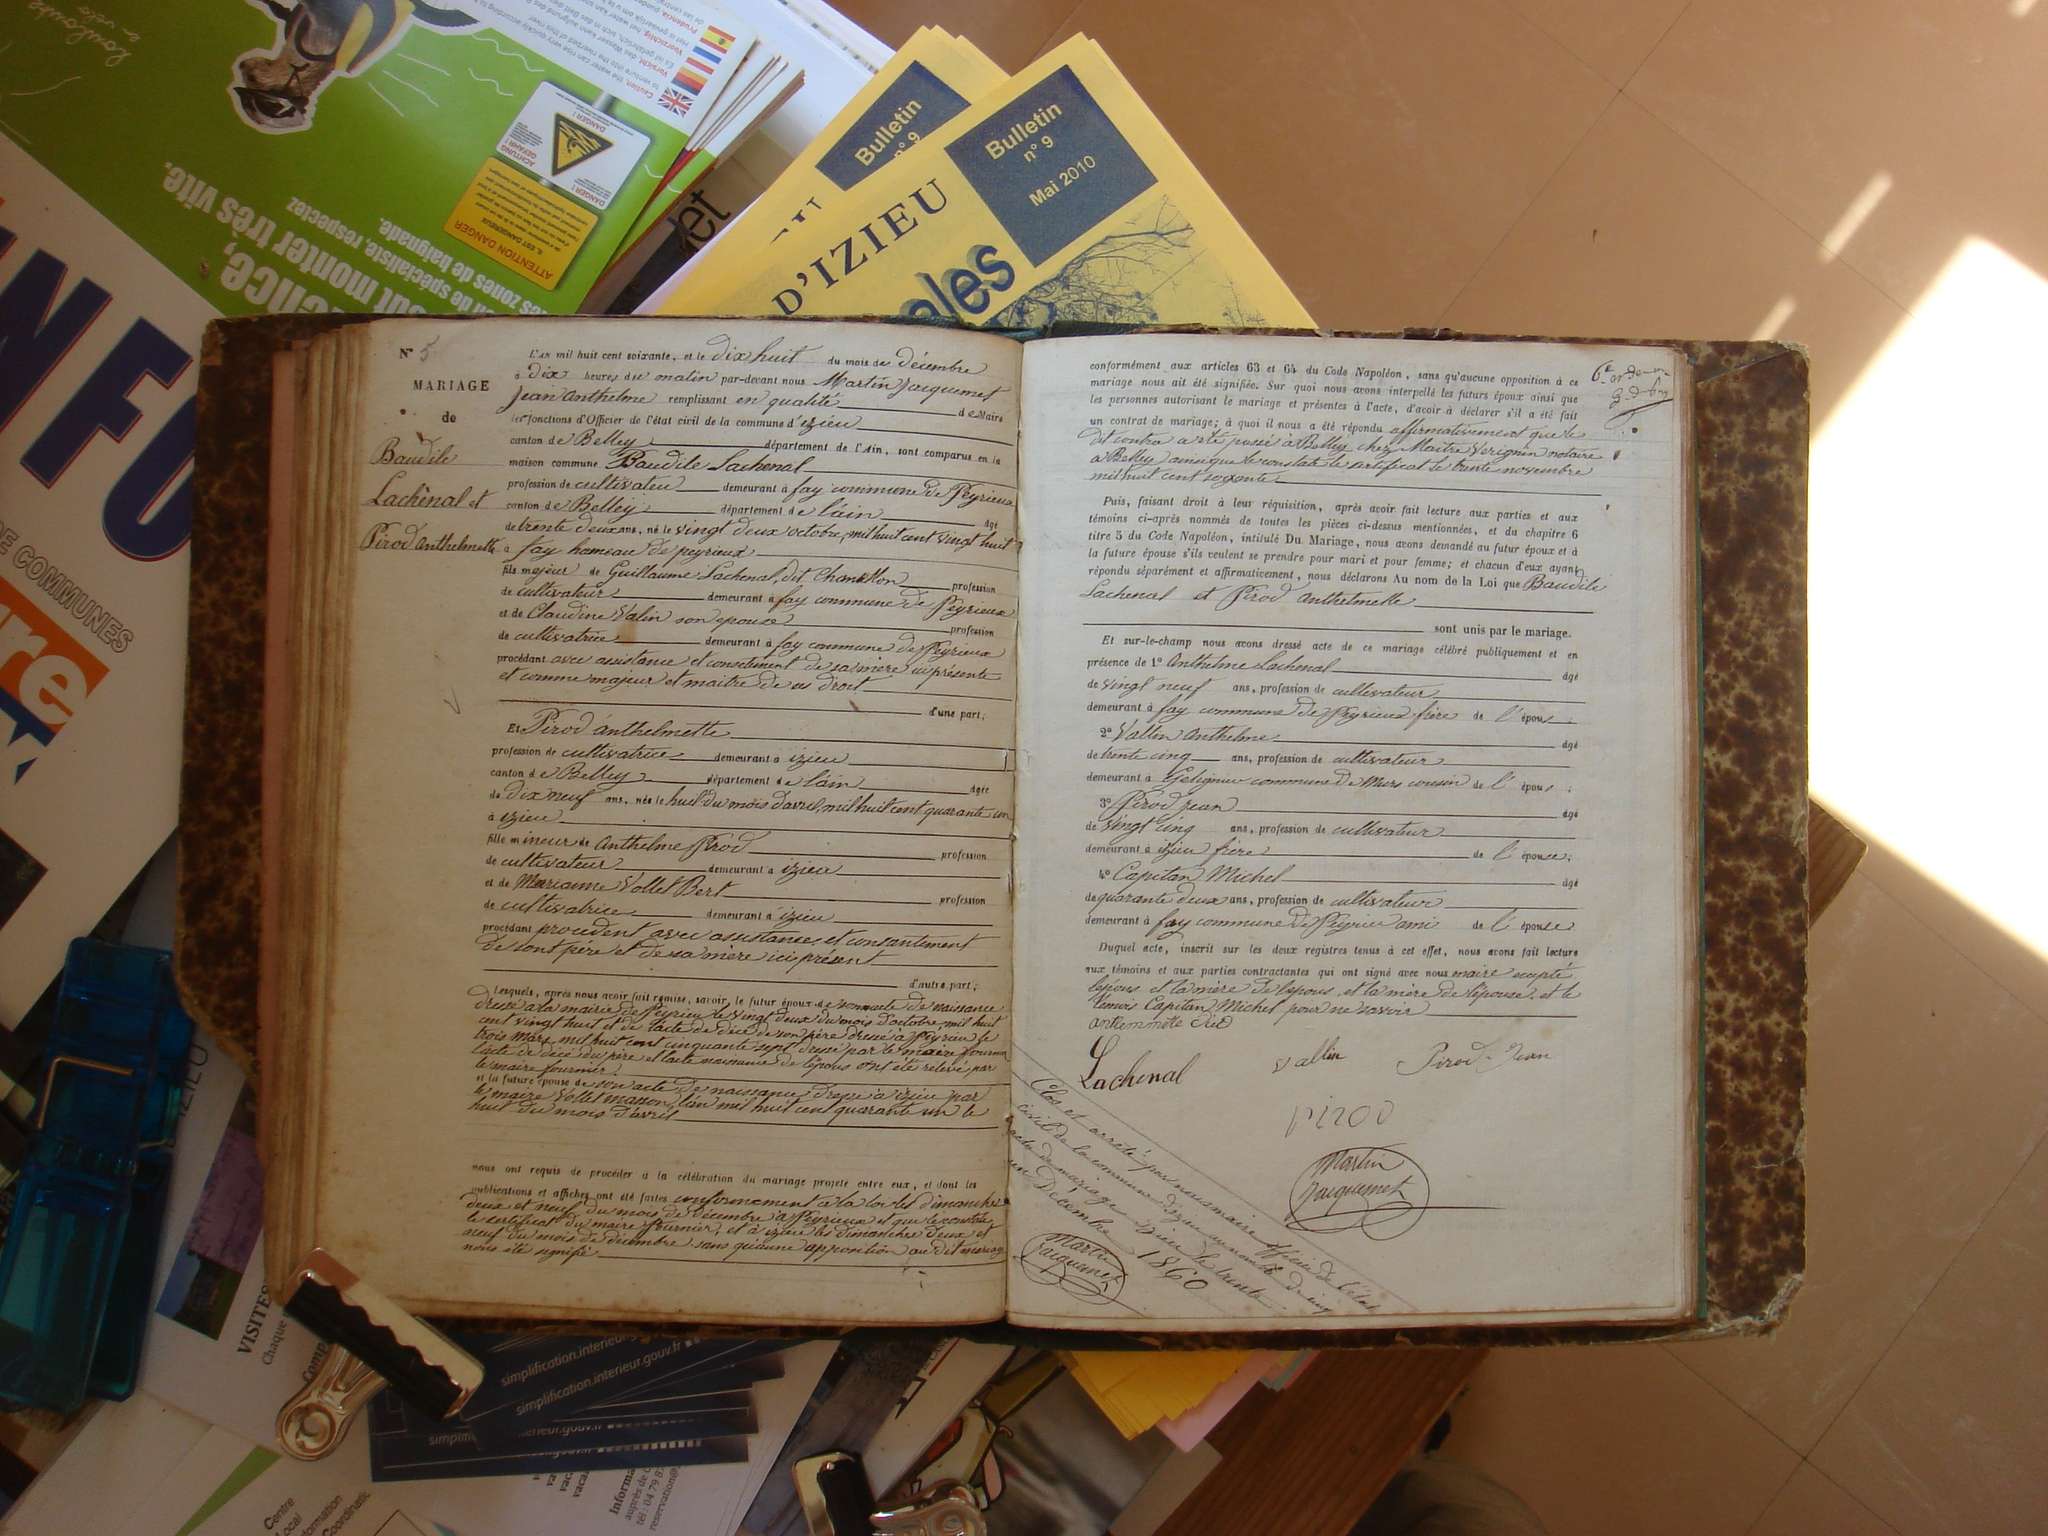 Bulletin
n° 9
Bulletin
n° 9
Mai 2010
D'IZIEU
ales
Caution,
Vorsicht,
Voorzichtig,
Prudencia,
ATTENTION DANGER
DANGER !
ACHTUNG
GEFAHR !
DANGER !
ence,
out monter très vite.
de spécialiste, respectez
les zones de baignade.
NFO
DE COMMUNES
re
N° 5
MARIAGE
de
Baudile
Lachènal et
Pirod Anthelmette
L'AN mil huit cent soixante, et le dix huit du mois de décembre
à dix heures du matin par-devant nous Martin Jacquemet
Jean Anthelme remplissant en qualité de Maire
les fonctions d'Officier de l'état civil de la commune d'izieu
canton de Belley département de l'Ain, sont comparus en la
maison commune Baudile Lachenal
profession de cultivateur demeurant à fay commune de Peyrieux
canton de Belley département de l'ain âgé
de trente deux ans, né le vingt deux octobre, mil huit cent vingt huit
à fay hameau de peyrieux
fils majeur de Guillaume Lachenal, dit Chandlon profession
de cultivateur demeurant à fay commune de Peyrieux
et de Claudine Valin son épouse profession
de cultivatrice demeurant à fay commune de Peyrieux
procédant avec assistance et consetiment de sa mère ici présente
et comme majeur et maitre de ces droit
d'une part;
Et Pirod anthelmette
profession de cultivatrice demeurant à izieu
canton de Belley département de l'ain âgée
de dix neuf ans, née le huit du mois d'avril, mil huit cent quarante un
à izieu
fille mineur de Anthelme Pirod profession
de cultivateur demeurant à izieu
et de Marianne Vollet Bert profession
de cultivatrice demeurant à izieu
procédant procedent avec assistance, et consantement
de sont père et de sa mère ici présent
d'autre part;
Lesquels, après nous avoir fait remise, savoir, le futur époux de son acte de naissance
dressé a la mairie de Peyrieu le vingt deux du mois d'octobre, mil huit
cent vingt huit et de lacte de décé de son père dressé à Peyrieu le
trois Mars mil huit cent cinquante sept dressé par le maire fournier
lacte de décé du père et lacte naissance de l'épous ont été relevé par
le maire fournier
et la future épouse de son acte de naissance dressé à izieu par
le maire Vollet masson, l'an mil huit cent quarante un le
huit du mois d'avril
nous ont requis de procéder à la célébration du mariage projeté entre eux, et dont les
publications et affiches ont été faites conformement à la loi les dimanches
deux et neuf du mois de décembre à Peyrieux et que le constate
le sertificat du maire fournier, et à izieu les dimanches deux et
neuf du mois de décembre sans quaucune apposition au dit mariage
nous été signifié
conformément aux articles 63 et 64 du Code Napoléon, sans qu'aucune opposition à ce
mariage nous ait été signifiée. Sur quoi nous avons interpellé les futurs époux ainsi que
les personnes autorisant le mariage et présentes à l'acte, d'avoir à déclarer s'il a été fait
un contrat de mariage; à quoi il nous a été répondu affirmativement que le
dit contra a été passé à Belley chez Maitre Verignin notaire
a Belley ainsi que le constate le sertificat le trente novembre
mil huit cent soixante
Puis, faisant droit à leur réquisition, après avoir fait lecture aux parties et aux
témoins ci-après nommés de toutes les pièces ci-dessus mentionnées, et du chapitre 6
titre 5 du Code Napoléon, intitulé Du Mariage, nous avons demandé au futur époux et à
la future épouse s'ils veulent se prendre pour mari et pour femme; et chacun d'eux ayant
répondu séparément et affirmativement, nous déclarons Au nom de la Loi que Baudile
Lachenal et Pirod Anthelmette
sont unis par le mariage.
Et sur-le-champ nous avons dressé acte de ce mariage célébré publiquement et en
présence de 1° Anthelme Lachenal âgé
de vingt neuf ans, profession de cultivateur
demeurant à fay commune de Peyrieux frère de l'épous ;
2° Vallin Anthelme âgé
de trente cinq ans, profession de cultivateur
demeurant à commune de Murs cousin de l'épous ;
3° Pirod Jean âgé
de vingt cinq ans, profession de cultivateur
demeurant à izieu frère de l'épouse;
4° Capitan Michel âgé
de quarante deux ans, profession de cultivateur
demeurant à fay commune de Peyrieu ami de l'épouse
Duquel acte, inscrit sur les deux registres tenus à cet effet, nous avons fait lecture
aux témoins et aux parties contractantes qui ont signé avec nous maire ecepté
lepous et la mère de l'epous, et la mère de l'épouse, et le
témois Capitan Michel pour ne savoir
Lachenal
vallin
Pirod Jean
pirod
Martin
Jacquemet
Clos et arrêté par nous maire officier de l'état
civil de la commune d'izieu au nombre de cinq
acte de mariage izieu le trente
un Décembre 1860
Martin
Jacquemet
VISITES
Chaque
simplification.interieur.gouv.fr
simplification.interieur.gouv.fr
Centre
Local
Information
Coordination